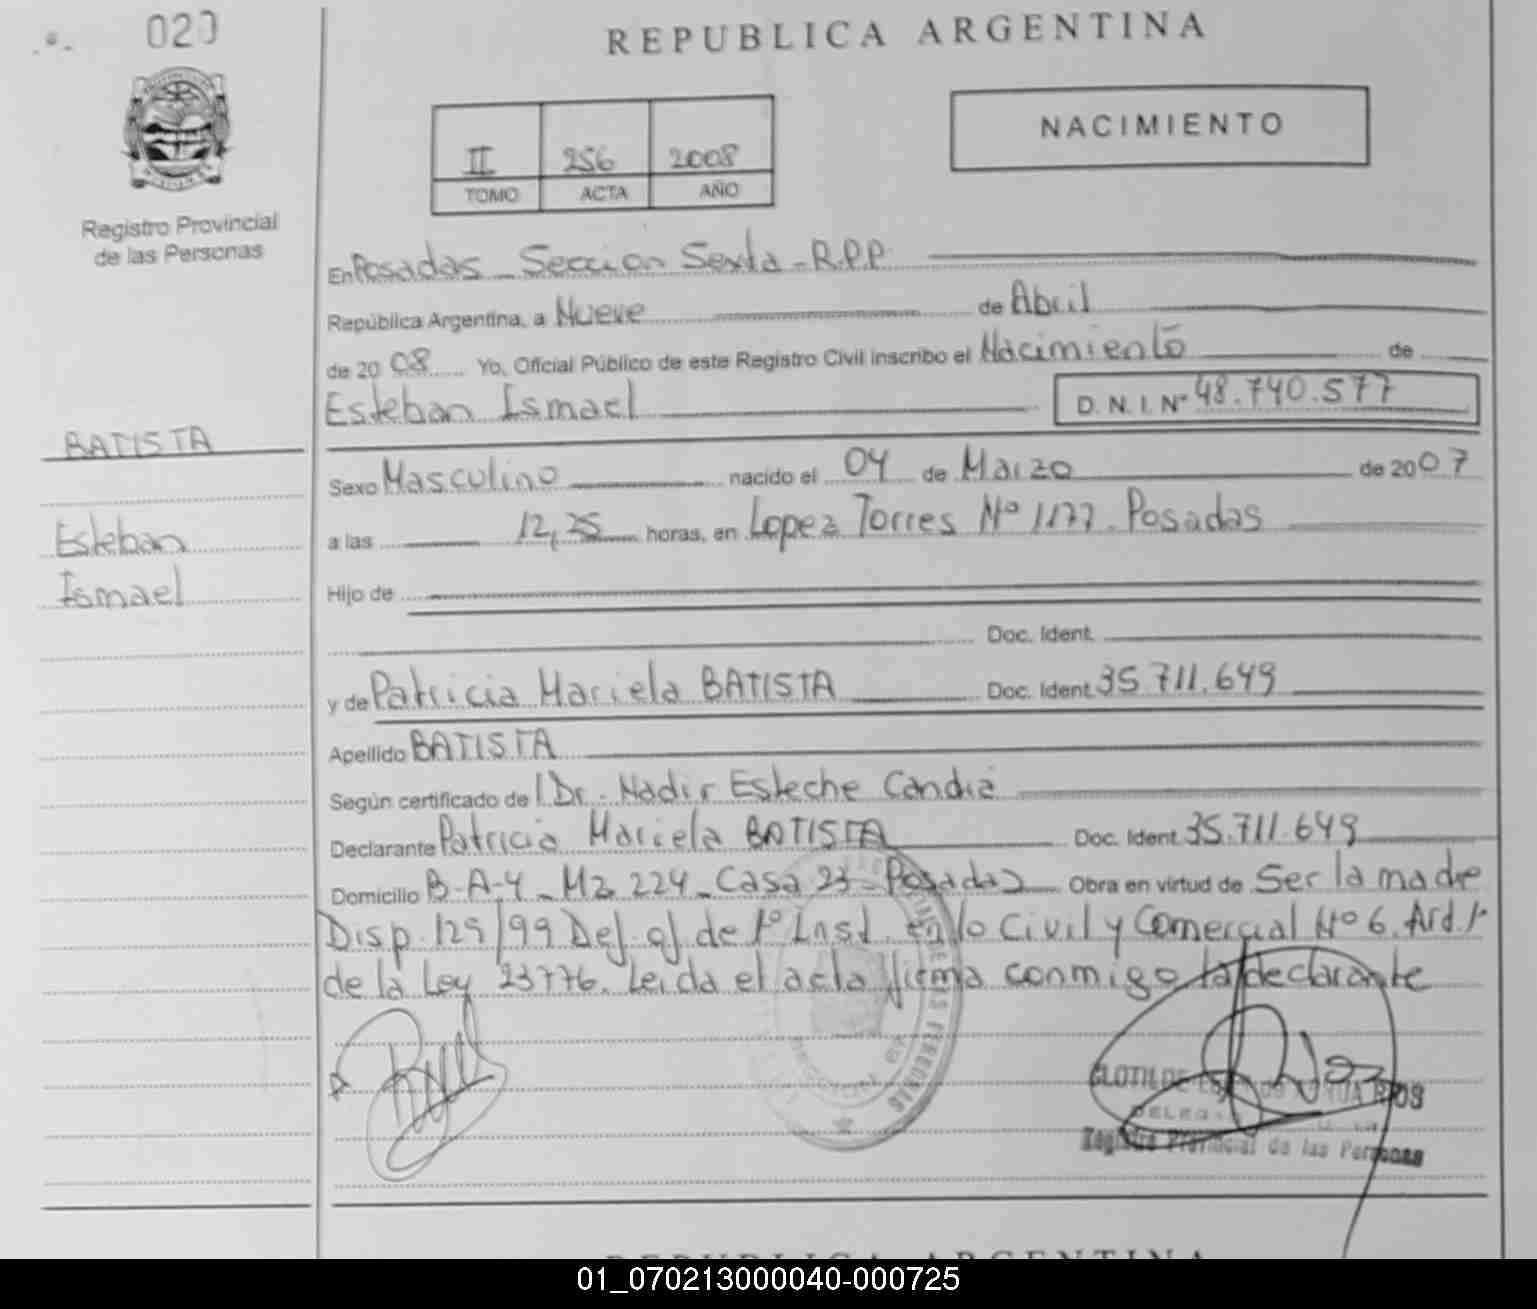 020
REPUBLICA ARGENTINA
NACIMIENTO
II 256 2008
TOMO ACTA AÑO
Registro Provincial
de las Personas
En Posadas - Sección Sexta - R.P.P.
República Argentina, a Nueve de Abril
de 2008 Yo, Oficial Público de este Registro Civil inscribo el Nacimiento de
Esteban Ismael D. N. I. Nº 48.740.577
BATISTA
Sexo Masculino nacido el 04 de Marzo de 2007
a las 12,25 horas, en Lopez Torres Nº 1177. Posadas
Esteban
Ismael
Hijo de
Doc. Ident.
y de Patricia Mariela BATISTA Doc. Ident. 35.711.649
Apellido BATISTA
Según certificado de Dr. Nadir Esteche Candia
Declarante Patricia Mariela BATISTA Doc. Ident. 35.711.649
Domicilio B-A-4 - Mz 224 - Casa 23 - Posadas Obra en virtud de Ser la madre
Disp. 129/99 Def. of. de 1º Inst. en lo Civil y Comercial Nº 6. Art. 1º
de la Ley 23776. Leida el acta firma conmigo la declarante
CLOTILDE RIOS
Registro Provincial de las Personas
REPUBLICA ARGENTINA
01_070213000040-000725